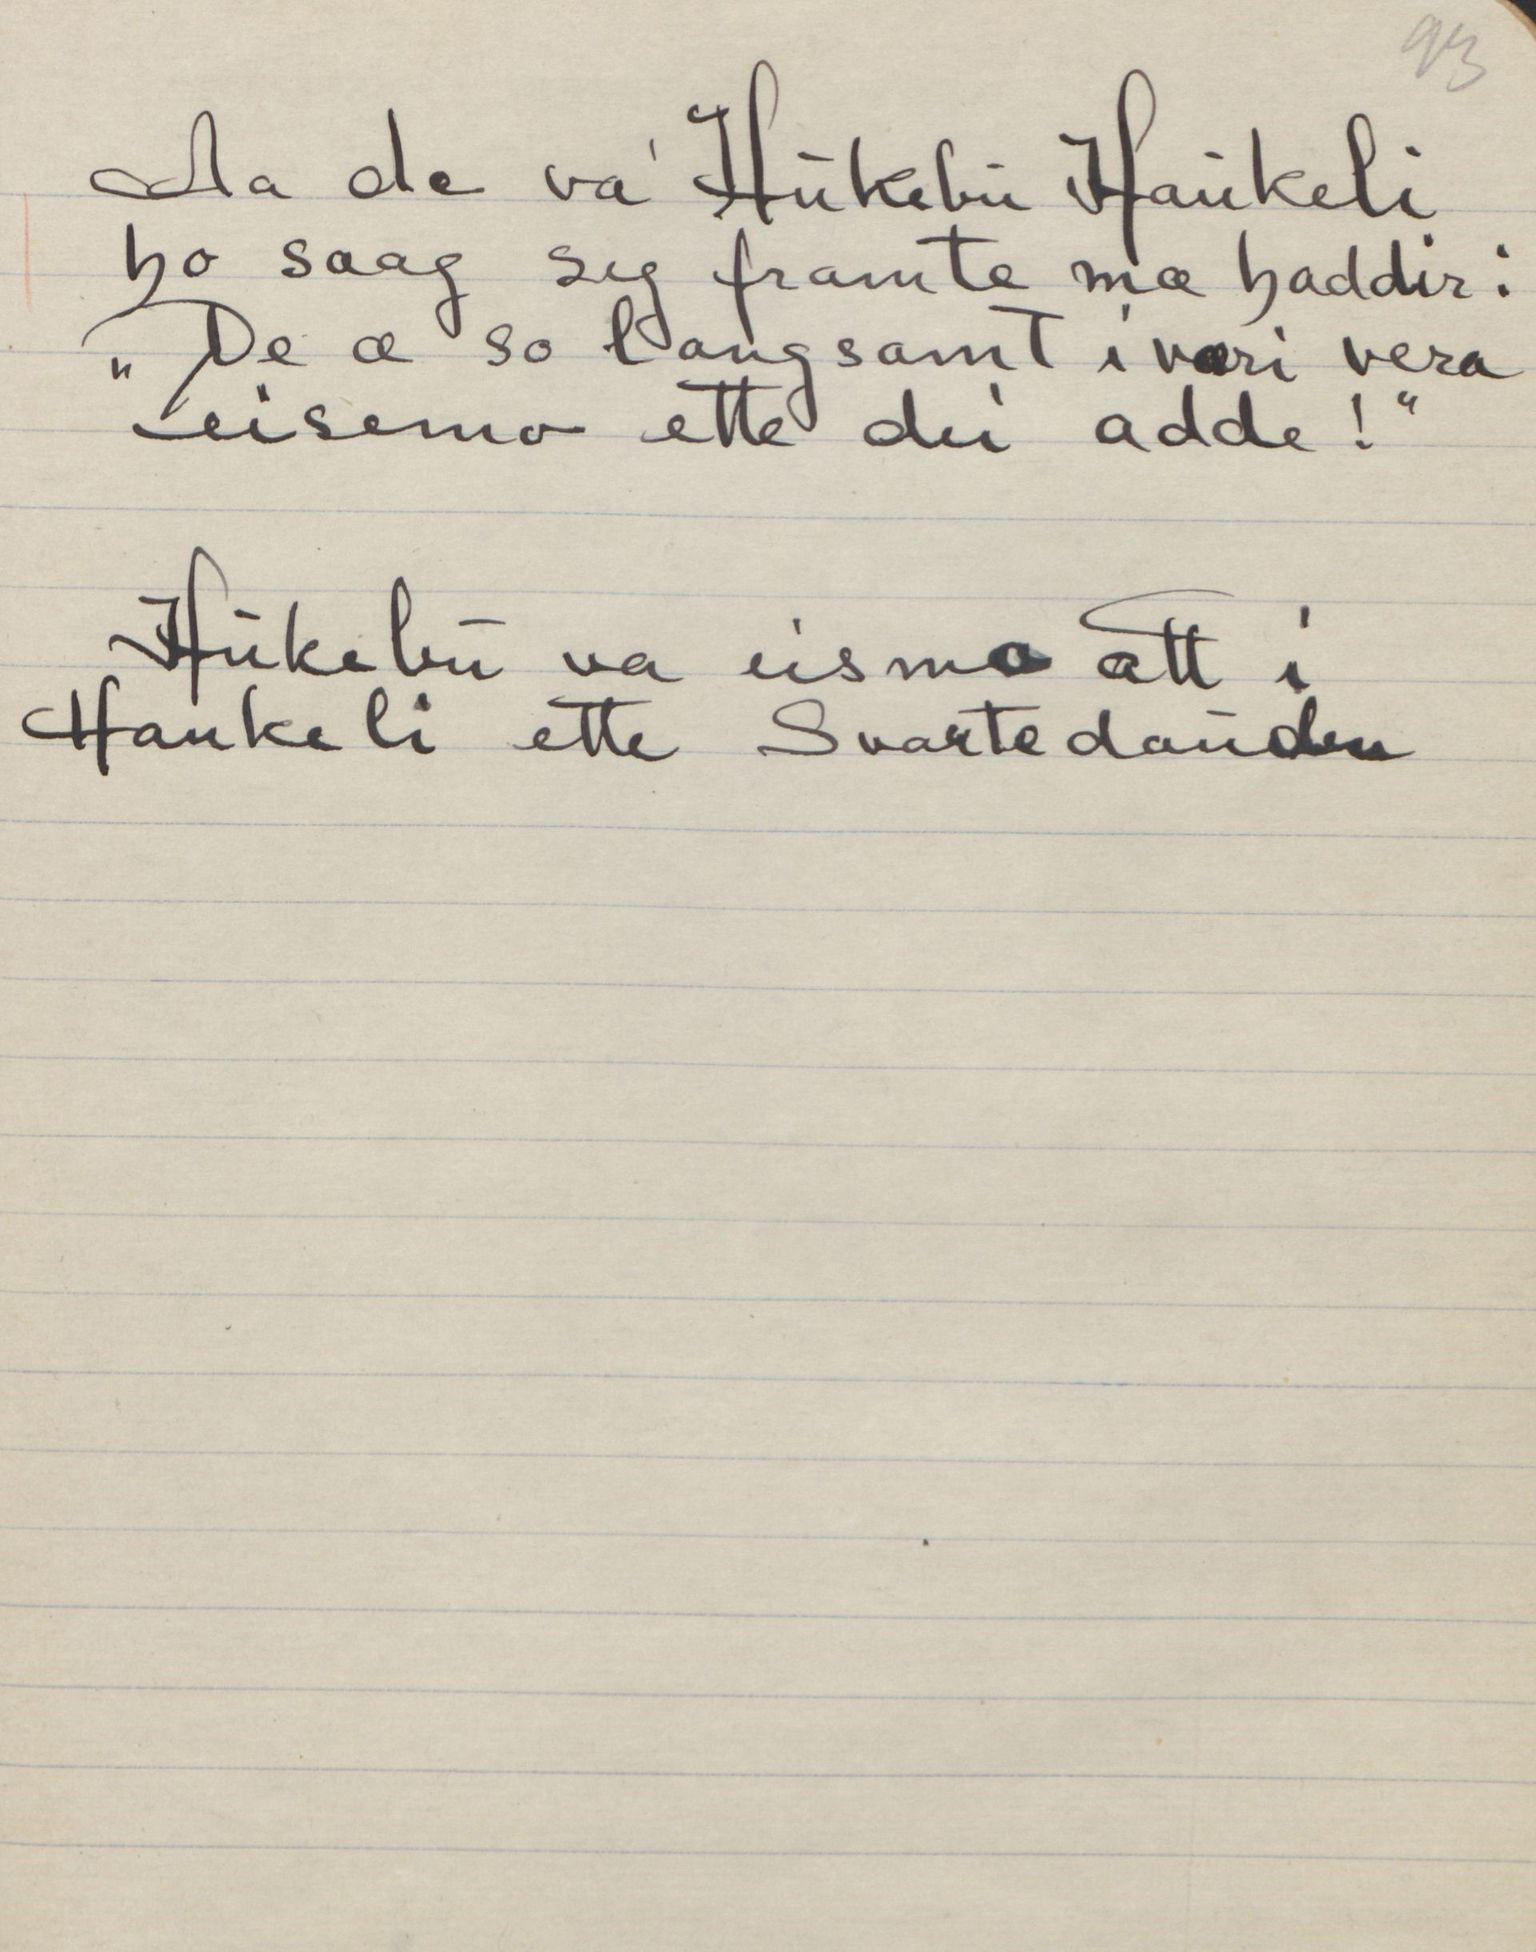 93
Aa de va' Hūkebū Haukeli
ho saag seg framte mæ haddir:
„De æ so langsamt i væri vera
eisemo ette dei adde!“
Hūkebū va eismo att i
Haukeli ette Svartedauden